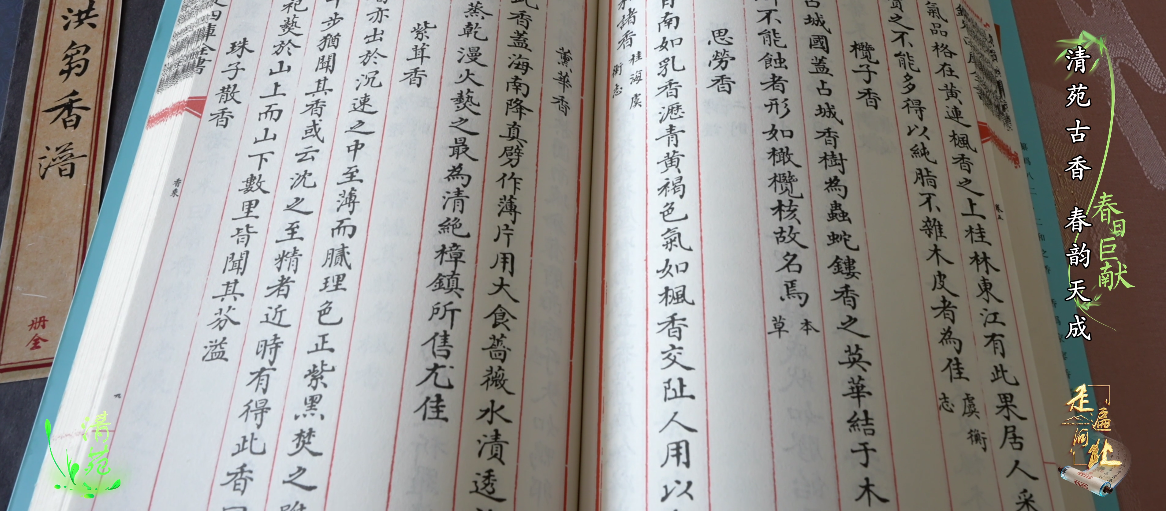 氣品格在黄連楓香之上桂林東江有此果居人采
賣之不能多得以純脂不雜木皮者為佳
虞衡
志
欖子香
占城國蓋占城香樹為蟲蛇鏤香之英華結于木
不能蝕者形如橄欖核故名焉
本
草
思勞香
南如乳香瀝青黄褐色氣如楓香交趾人用以
諸香
桂海虞
衡志
薰華香
此香蓋海南降真劈作薄片用大食薔薇水漬透
蒸乾漫火爇之最為清絶樟鎮所售尤佳
紫茸香
亦出於沉速之中至薄而膩理色正紫黑焚之雖
步猶聞其香或云沈之至精者近時有得此香
祀爇於山上而山下數里皆聞其芬溢
珠子散香
香乘
洪芻香譜
册全
清苑古香 春韵天成
春日巨献
走遍
清苑